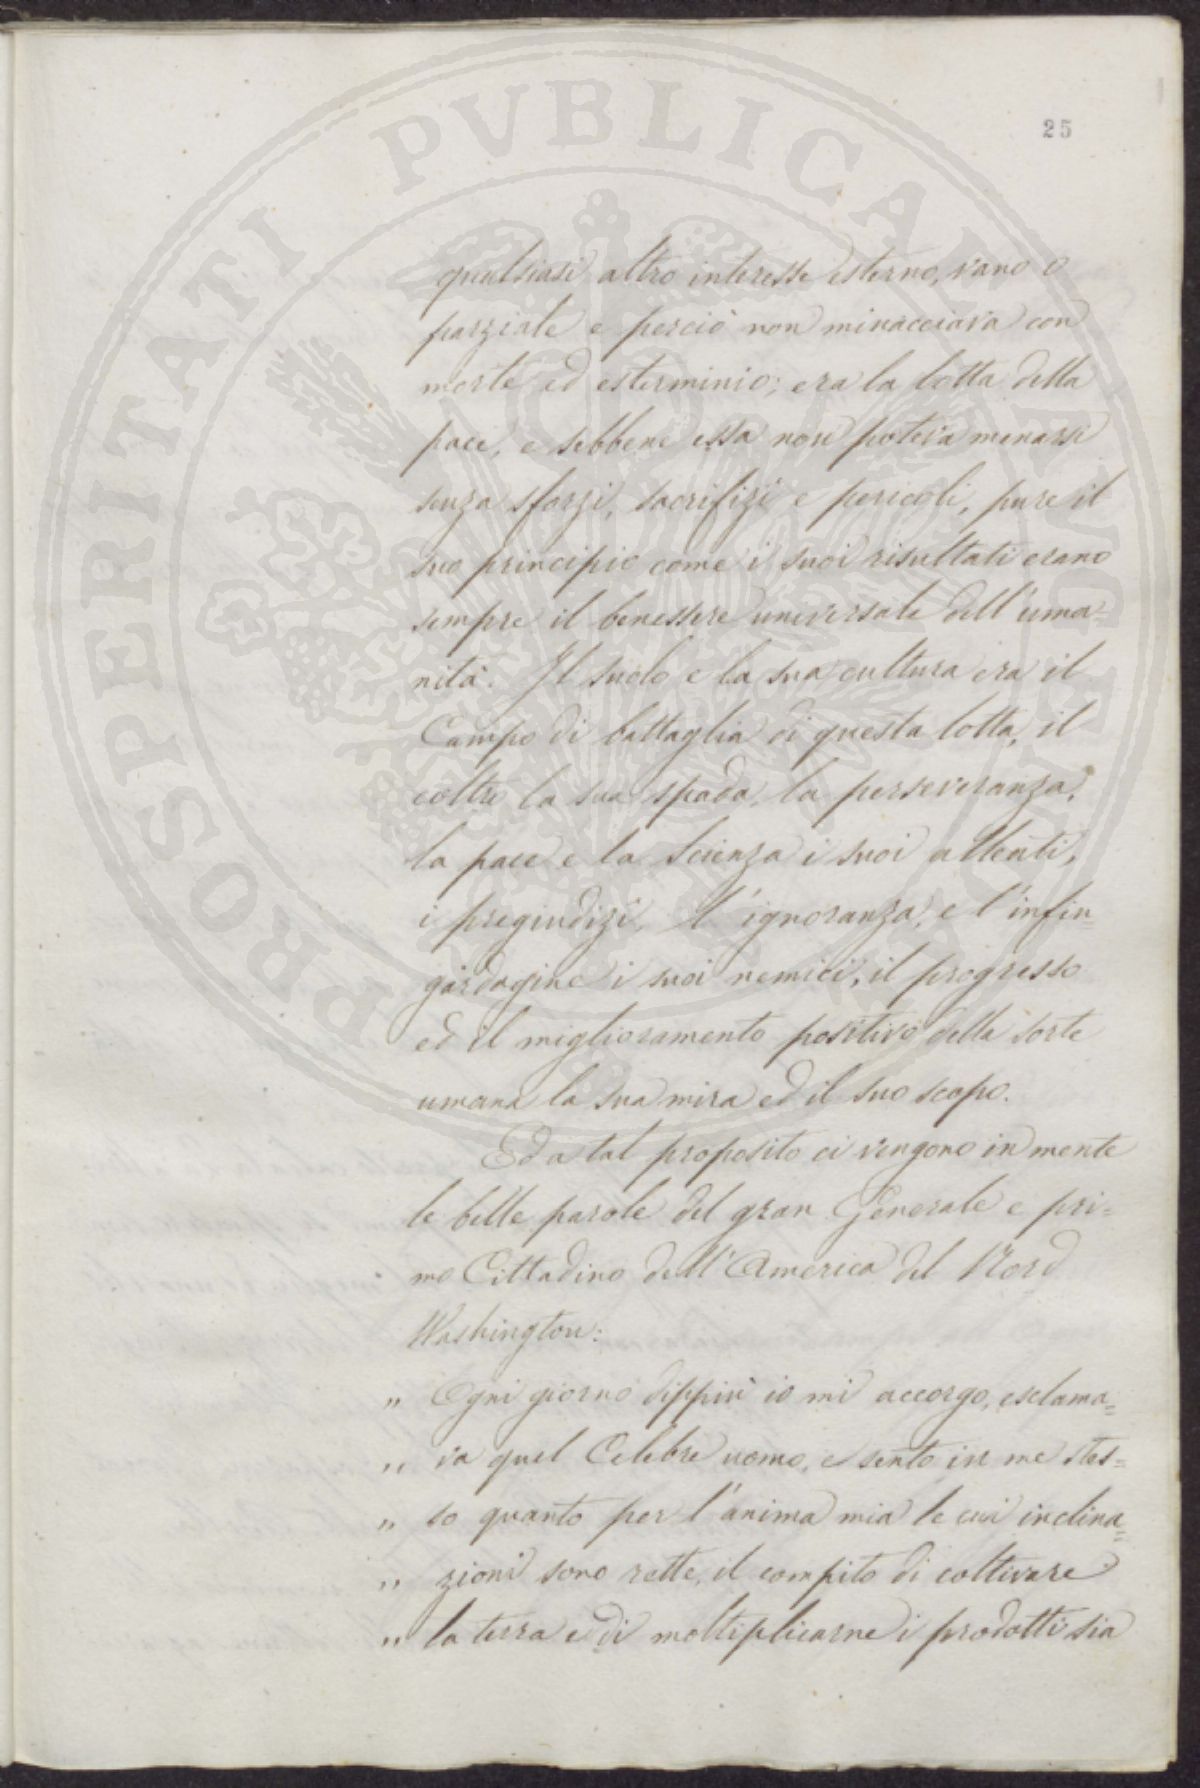 PROSPERITATI PVBLICAE AVGENDAE
25
qualsiasi altro interesse esterno, vano o
parziale e perciò non minacciava con
morte ed esterminio; era la lotta della
pace, e sebbene essa non poteva menarsi
senza sforzi, sacrifizi e pericoli, pure il
suo principio come i suoi risultati erano
sempre il benessere universale dell'uma=
nità. Il suolo e la sua cultura era il
Campo di battaglia di questa lotta, il
coltre la sua spada, la perseveranza,
la pace e la Scienza i suoi alleati,
i pregiudizi, l'ignoranza, e l'infin=
gardagine i suoi nemici, il progresso
ed il miglioramento positivo della sorte
umana la sua mira ed il suo scopo.
Ed a tal proposito ci vengono in mente
le belle parole del gran Generale e pri=
mo Cittadino dell'America del Nord
Washington:
„ Ogni giorno dippiù io mi accorgo, esclama=
„ va quel Celebre uomo, e sento in me stes=
„ so quanto per l'anima mia le cui inclina=
„ zioni sono rette, il compito di coltivare
„ la terra e di moltiplicarne i prodotti sia